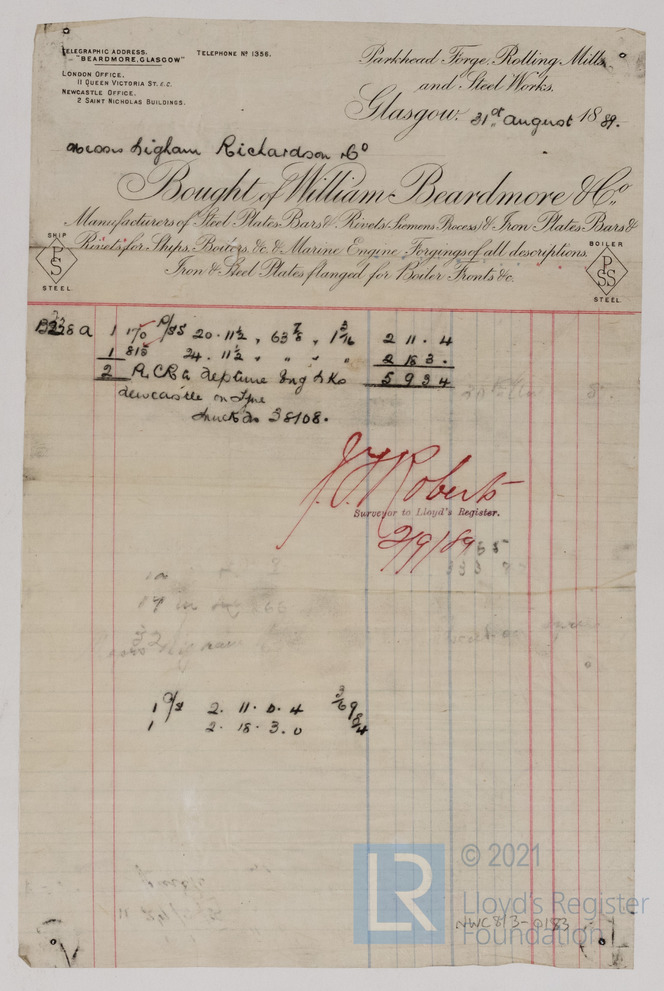 TELEGRAPHIC ADDRESS.
"BEARDMORE, GLASGOW"
TELEPHONE No 1356.
LONDON OFFICE,
11 QUEEN VICTORIA ST. E.C.
NEWCASTLE OFFICE,
2 SAINT NICHOLAS BUILDINGS.
Parkhead Forge, Rolling Mills,
and Steel Works.
Glasgow. 31st august 1889.
Messrs Wigham Richardson & Co
Bought of William Beardmore & Co.,
Manufacturers of Steel Plates Bars & Rivets (Siemens Process) & Iron Plates Bars &
Rivets for Ships, Boilers, &c. & Marine Engine Forgings of all descriptions.
Iron & Steel Plates flanged for Boiler Fronts &c.
SHIP
PSS
STEEL
BOILER
PSS
STEEL
1 170 P/SS 20 · 11½ " 63⅞ " 1 3/16 2 11 · 4
1 815 24 · 11½ " " " 2 18 3 ·
2 5 9 3 4
Neptune Eng Wks
Newcastle on Tyne
Truck No 38108.
J. T. Roberts
Surveyor to Lloyd's Register.
2/9/89
1 2 · 11 · 0 · 4
1 2 · 18 · 3 · 0
LR
© 2021
Lloyd's Register
Foundation
NWC813-0183